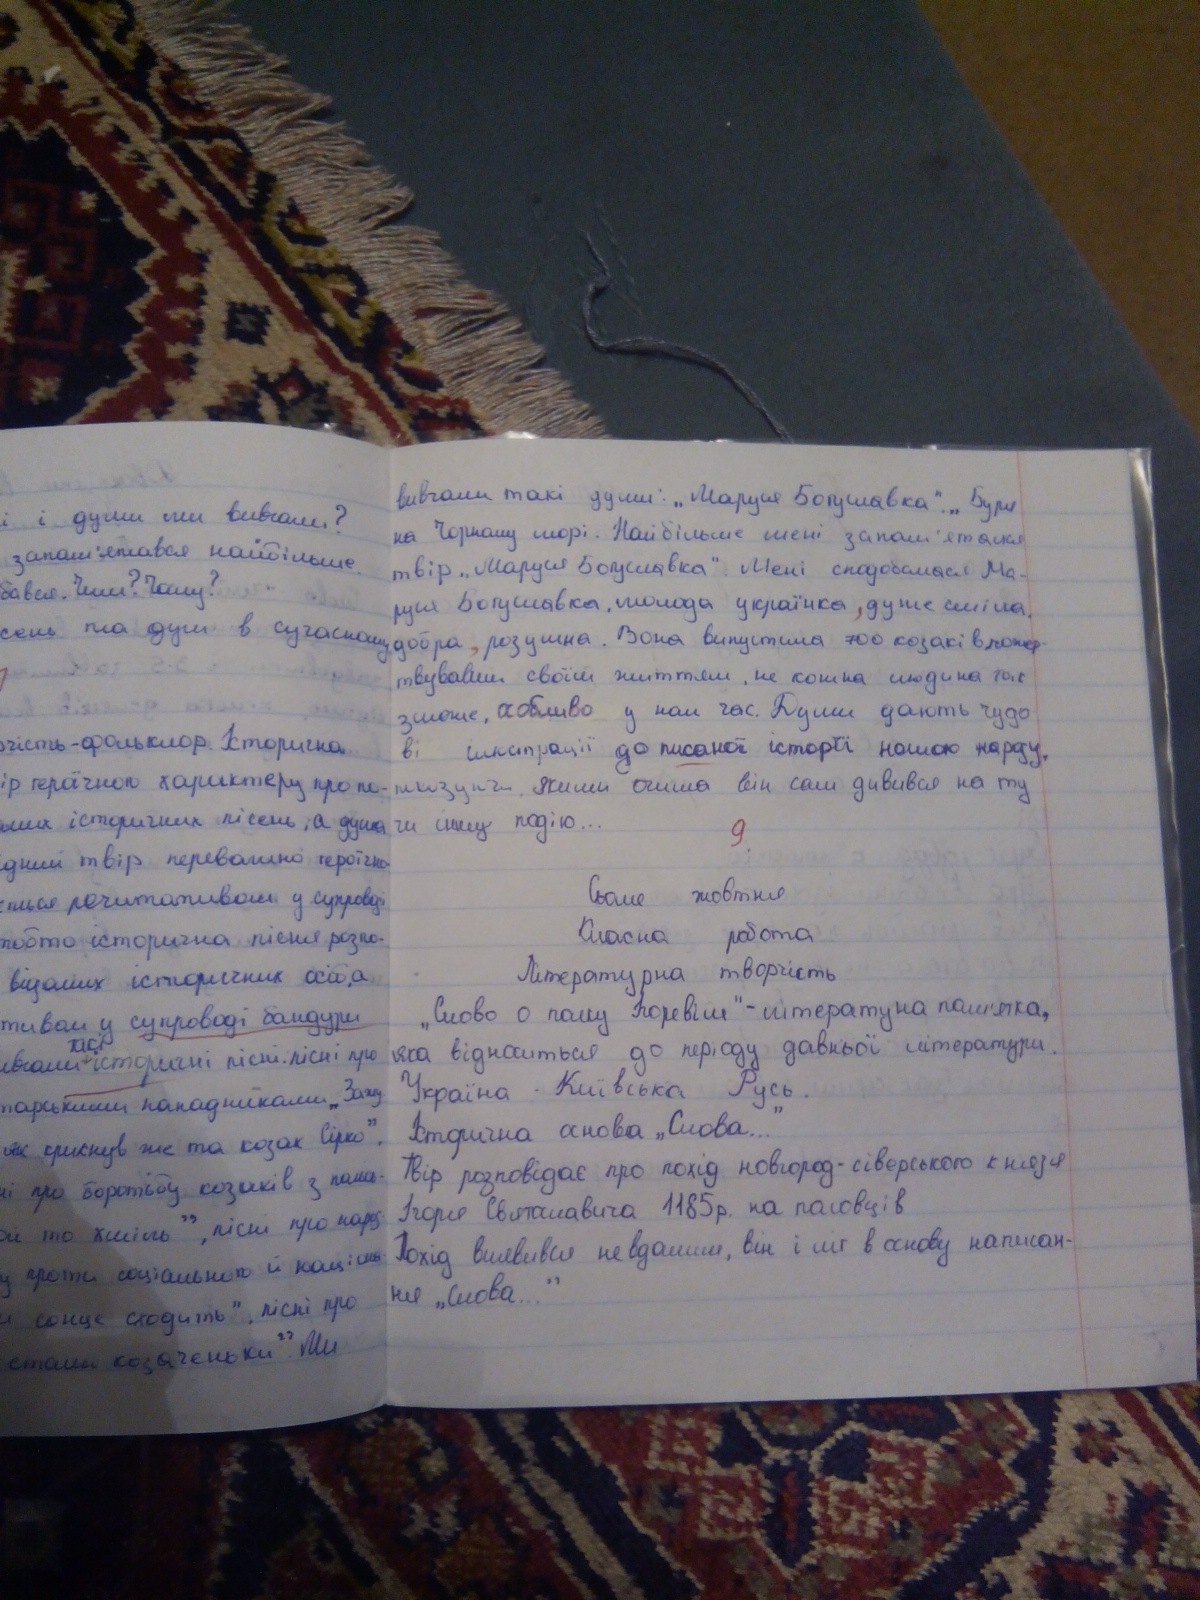 і і думи ми вивчали?
запам'ятався найбільше.
бався. Чим? Чому?
сень та дум в сучасному
рчість-фольклор. Історична
ір героїчного характеру про по-
ших історичних пісень, а дума
ідний твір переважно героїчно
речитативом у супроводі
тобто історична пісня розпо-
відомих історичних осіб, а
тивом у супроводі бандури
ивчали такі історичні пісні: пісні про
тарськими нападниками „Зажу
як крикнув же та козак Сірко".
ні про боротьбу козаків з поль-
ой то хміль", пісні про нар
у проти соціального й націона
и сонце сходить", пісні про
стали козаченьки". Ми
вивчали такі думи: „Маруся Богуславка". „Буря
на Чорному морі. Найбільше мені запам'ятався
твір „Маруся Богуславка". Мені сподобалася Ма-
руся Богуславка, молода українка, дуже сміла,
добра, розумна. Вона випустила 700 козаків пожер-
твувавши своїм життям, не кожна людина так
зможе, особливо у наш час. Думи дають чудо
ві ілюстрації до писаної історії нашою нарду,
показуючи, якими очима він сам дивився на ту
чи іншу подію...
9.
Сьоме жовтня
Класна робота
Літературна творчість
„Слово о полку Ігоревім" - літературна пам'ятка,
яка відноситься до періоду давньої літератури.
Україна - Київська Русь.
Історична основа „Слова..."
Твір розповідає про похід новгород-сіверського князя
Ігоря Святославича 1185р. на половців
Похід виявився невдалим, він і ліг в основу написан-
ня „Слова..."